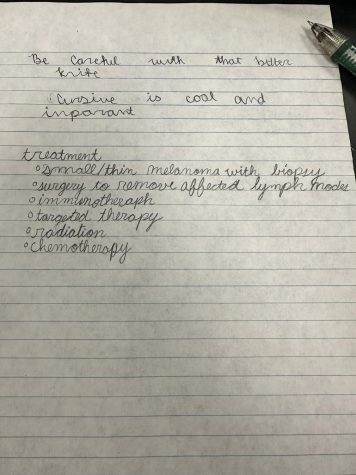 Be Careful with that butter
knife
Cursive is cool and
inporant
treatment
°small/thin melanoma with biopsy
°surgery to remove affected lymph modes
°immunotheraph
°targeted therapy
°radiation
°chemotherapy